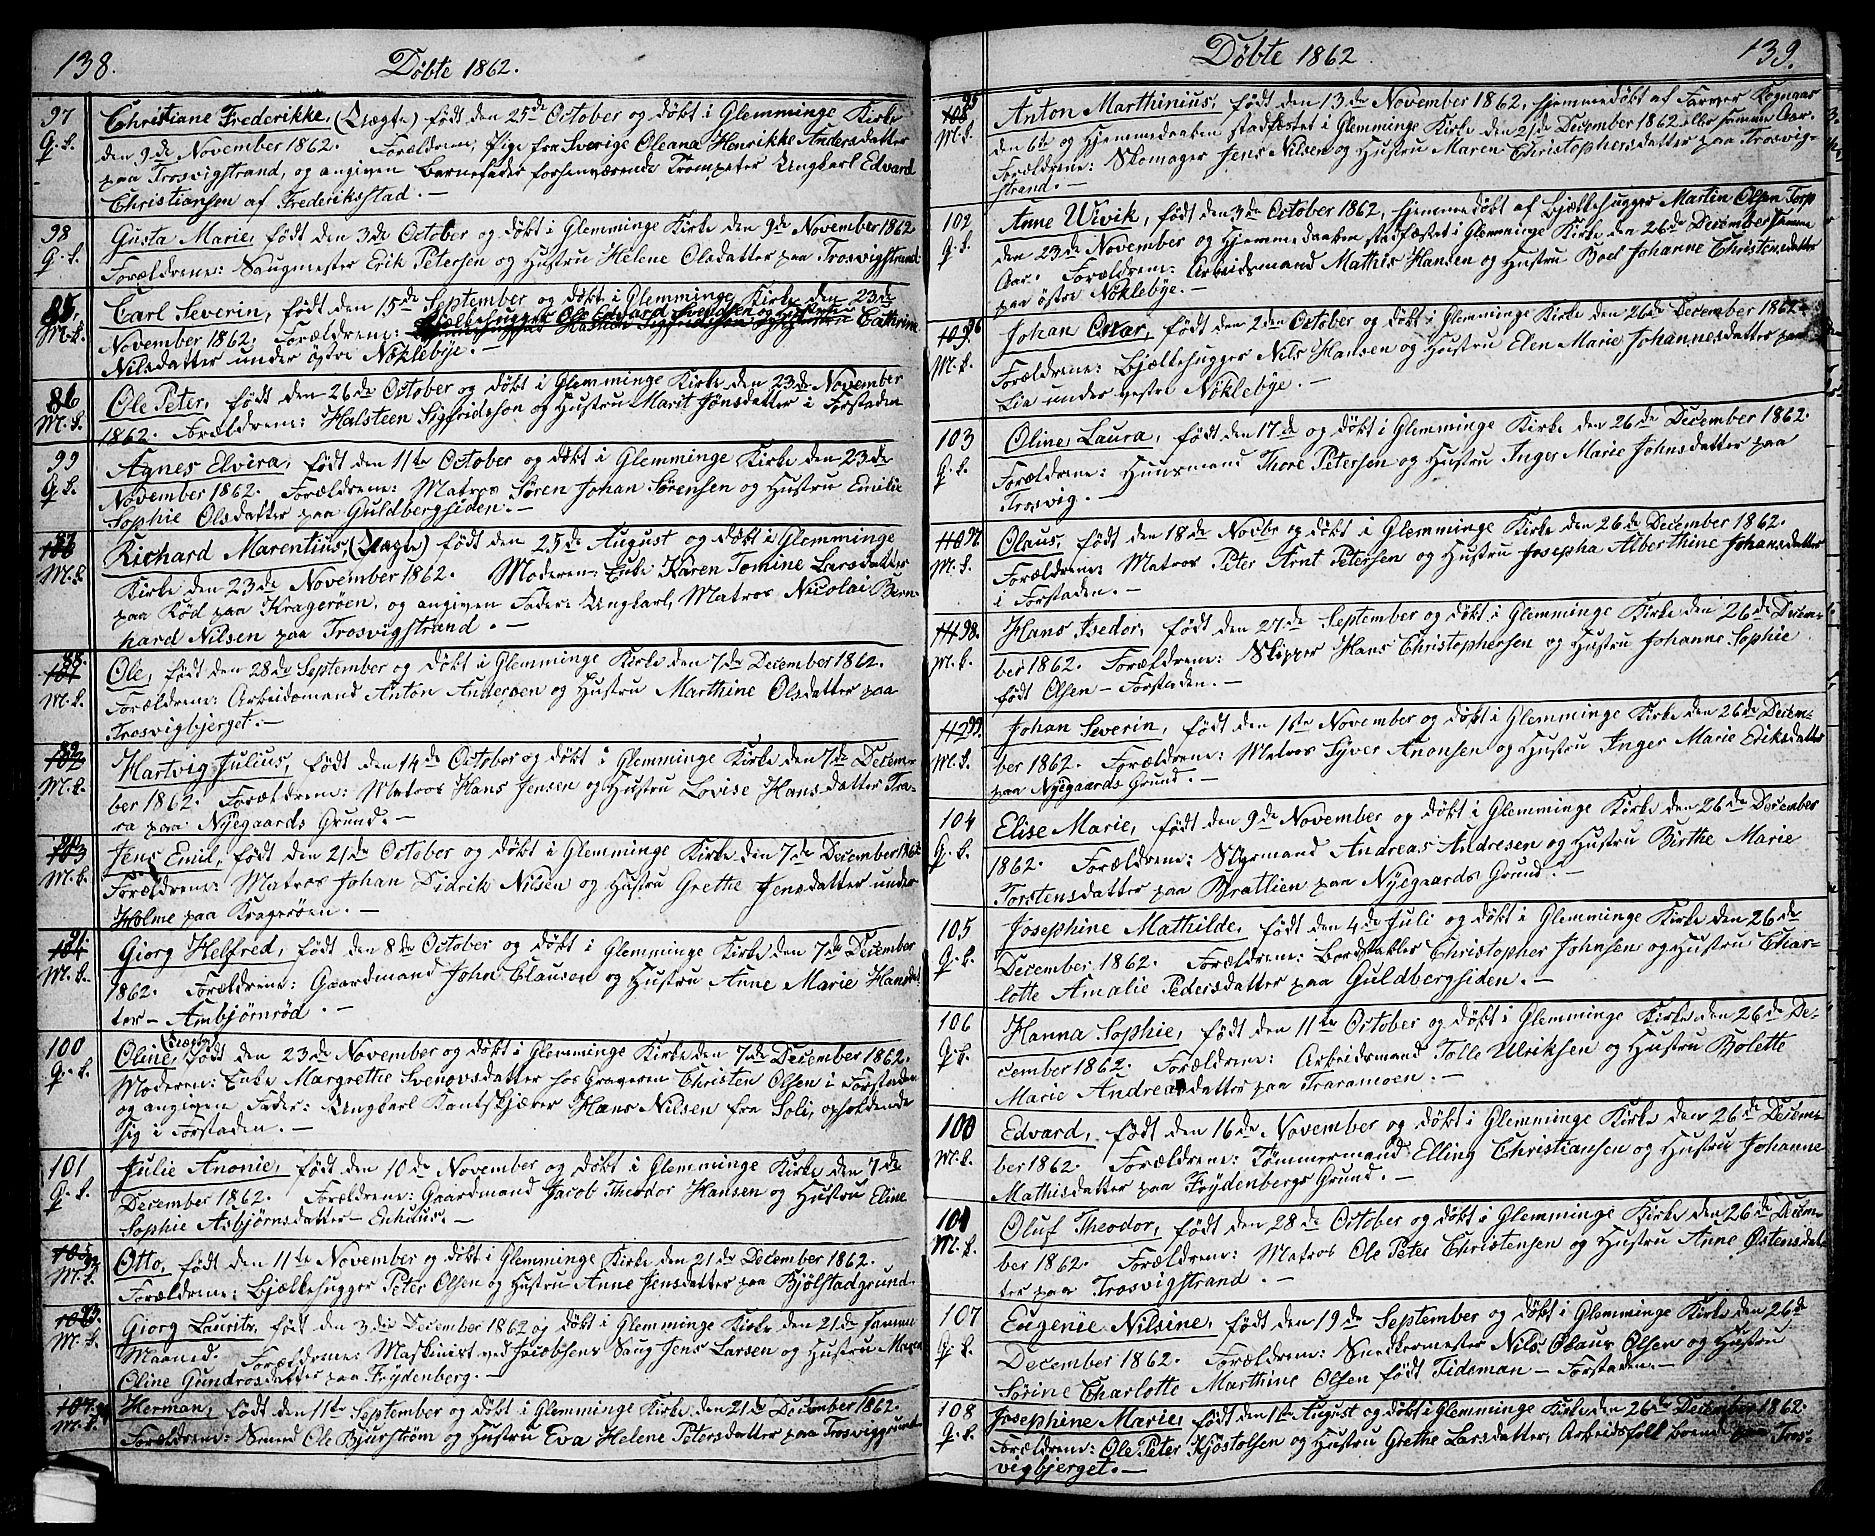 138.
Döbte 1862.
97
Q. k.
Christiane Frederikke, (Uægte) født den 25de October og døbt i Glemminge Kirke
den 9de November 1862. Forældrene; Pige fra Sverige Oleana Henrikke Andersdatter
paa Trosvigstrand, og angiven Barnefader forhenværende Trompeter Ungkarl Edvard
Christiansen af Frederiksstad. —
98
Q. k.
Gusta Marie, født den 3de October og døbt i Glemminge Kirke den 9de November 1862
Forældrene: Saugmester Erik Petersen og Hustru Helene Olsdatter paa Trosvigstrand
85.
M. k.
Carl Severin, født den 15de September og døbt i Glemminge Kirke den 23de
November 1862. Forældrene: Bjelkehugger Ole Edvard Svendsen og Hustru Cathrine
Nilsdatter under östre Nöklebye. —
86
M. k.
Ole Peter, født den 26de October og døbt i Glemminge Kirke den 23de November
1862. Forældrene: Halsteen Sigfridsson og Hustru Marit Jönsdatter i Forstaden
99
Q. k.
Agnes Elvira, født den 11te October og døbt i Glemminge Kirke den 23de
November 1862. Forældrene: Matros Sören Johan Sörensen og Hustru Emilie
Sophie Olsdatter paa Guldbergsiden. —
87
M. k.
Richard Marentius, (Uægte) født den 25de August og døbt i Glemminge
Kirke den 23de November 1862. Moderen: Enke Karen Tomine Larsdatter
paa Röd paa Kragerøen, og angiven Fader: Ungkarl, Matros Nicolai Bern-
hard Nilsen paa Trosvigstrand. —
88.
M. k.
Ole, født den 28de September og døbt i Glemminge Kirke den 7de December 1862.
Forældrene: Arbeidsmand Anton Andersen og Hustru Marthine Olsdatter paa
Trosvigbjerget. —
89
M. k.
Hartvig Julius, født den 14de October og døbt i Glemminge Kirke den 7de Decem-
ber 1862. Forældrene: Matros Hans Jensen og Hustru Lovise Hansdatter Tra-
ra paa Nyegaards Grund. —
90
103
M. k.
Jens Emil, født den 21de October og døbt i Glemminge Kirke den 7de December 1862
Forældrene: Matros Johan Didrik Nilsen og Hustru Grethe Jensdatter under
Holme paa Kragerøen. —
91
104
M. k.
Giorg Helfred, født den 8de October og døbt i Glemminge Kirke den 7de December
1862. Forældrene: Gaardmand John Clausen og Hustru Anne Marie Hansdat
ter — Ambjørnrød. —
100
Q. k.
(Uægte)
Oline, født den 23de November og døbt i Glemminge Kirke den 7de December 1862.
Moderen: Enke Margrethe Svenovsdatter hos Graveren Christen Olsen i Forstaden
og angiven Fader: Ungkarl Kantskjærer Hans Nilsen fra Soli, opholdende
sig i Forstaden. —
101
Q. k.
Julie Anonie, født den 10de November og døbt i Glemminge Kirke den 7de
December 1862. Forældrene: Gaardmand Jacob Theodor Hansen og Hustru Eline
Sophie Asbjørnsdatter — Enhuus. —
105
M. k.
Otto, født den 11te November og døbt i Glemminge Kirke den 21de December 1862.
Forældrene: Bjælkehugger Peter Olsen og Hustru Anne Jensdatter paa Bjölstadgrund.
93.
M. k.
Giorg Lauritz, født den 3die December 1862 og døbt i Glemminge Kirke den 21de samme
Maaned. Forældrene: Maskinist ved Jacobsens Saug Jens Larsen og Hustru Maren
Oline Gundrosdatter paa Frydenberg. —
107
M. k.
Herman, født den 11te September og døbt i Glemminge Kirke den 21de December 1862.
Forældrene: Smed Ole Bjurström og Hustru Eva Helene Petersdatter paa Trosviggrunden
139.
Döbte 1862
95
108
M. k.
Anton Marthinius, født den 13de November 1862, hjemmedøbt af Farver Rognaas
den 6te og Hjemmedaaben stadfæstet i Glemminge Kirke den 21de December 1862 alt samme Aar.
Forældrene: Skomager Jens Nilsen og Hustru Maren Christophersdatter paa Trosvig-
strand. —
102
Q. k.
Anne Ulvik, født den 3de October 1862, hjemmedøbt af Bjælkehugger Martin Olsen Torp
den 23de November og Hjemmedaaben stadfæstet i Glemminge Kirke den 26de December samme
Aar. Forældrene: Arbeidsmand Mathis Hansen og Hustru Boel Johanne Christensdatter
paa östre Nöklebye. —
109. 96
M. k.
Johan Oskar, født den 2den October og døbt i Glemminge Kirke den 26de December 1862.
Forældrene: Bjælkehugger Nils Hansen og Hustru Elen Marie Johannesdatter paa
Lia under vestre Nöklebye. —
103
Q. k.
Oline Laura, født den 17de og døbt i Glemminge Kirke den 26de December 1862.
Forældrene: Huusmand Thore Petersen og Hustru Inger Marie Johnsdatter paa
Trosvig. —
110. 97
M. k.
Olaus, født den 18de Novbr og døbt i Glemminge Kirke den 26de December 1862.
Forældrene: Matros Peter Arnt Petersen og Hustru Josepha Alberthine Johansdatter
i Forstaden. —
111 98.
M. k.
Hans Isedor, født den 27de September og døbt i Glemminge Kirke den 26de Decem-
ber 1862. Forældrene: Skipper Hans Christophersen og Hustru Johanne Sophie
født Olsen — Forstaden. —
112 99.
M. k.
Johan Severin, født den 1ste November og døbt i Glemminge Kirke den 26de Decem-
ber 1862. Forældrene: Matros Syver Anonsen og Hustru Inger Marie Eriksdatter
paa Nyegaards Grund. —
104
Q. k.
Elise Marie, født den 9de November og døbt i Glemminge Kirke den 26de December
1862. Forældrene: Styrmand Andreas Andresen og Hustru Birthe Marie
Torstensdatter paa Bratlien paa Nyegaards Grund. —
105
Q. k.
Josephine Mathilde, født den 4de Juli og døbt i Glemminge Kirke den 26de
December 1862. Forældrene: Bordstabler Christopher Johnsen og Hustru Char-
lotte Amalie Pedersdatter paa Guldbergsiden. —
106
Q. k.
Hanna Sophie, født den 11te October og døbt i Glemminge Kirke den 26de De-
cember 1862. Forældrene: Arbeidsmand Tolle Ulriksen og Hustru Bolette
Marie Andreasdatter paa Traramoen. —
100
M. k.
Edvard, født den 16de November og døbt i Glemminge Kirke den 26de Decem-
ber 1862. Forældrene: Tømmermand Elling Christiansen og Hustru Johanne
Mathisdatter paa Frydenbergs Grund. —
101
M. k.
Oluf Theodor, født den 28de October og døbt i Glemminge Kirke den 26de Decem-
ber 1862. Forældrene: Matros Ole Peter Christensen og Hustru Anne Østensdat
ter paa Trosvigstrand. —
107
Q. k.
Eugenie Nilsine, født den 19de September og døbt i Glemminge Kirke den 26de
December 1862. Forældrene: Snedkermester Nils Olaus Olsen og Hustru
Sörine Charlotte Marthine Olsen født Tidsman — Forstaden. —
108
Q. k.
Josephine Marie, født den 1ste August og døbt i Glemminge Kirke den 26de December 1862.
Forældrene: Ole Peter Kjöstolsen og Hustru Grethe Larsdatter, Arbeidsfolk boende paa Tros-
vigbjerget. —